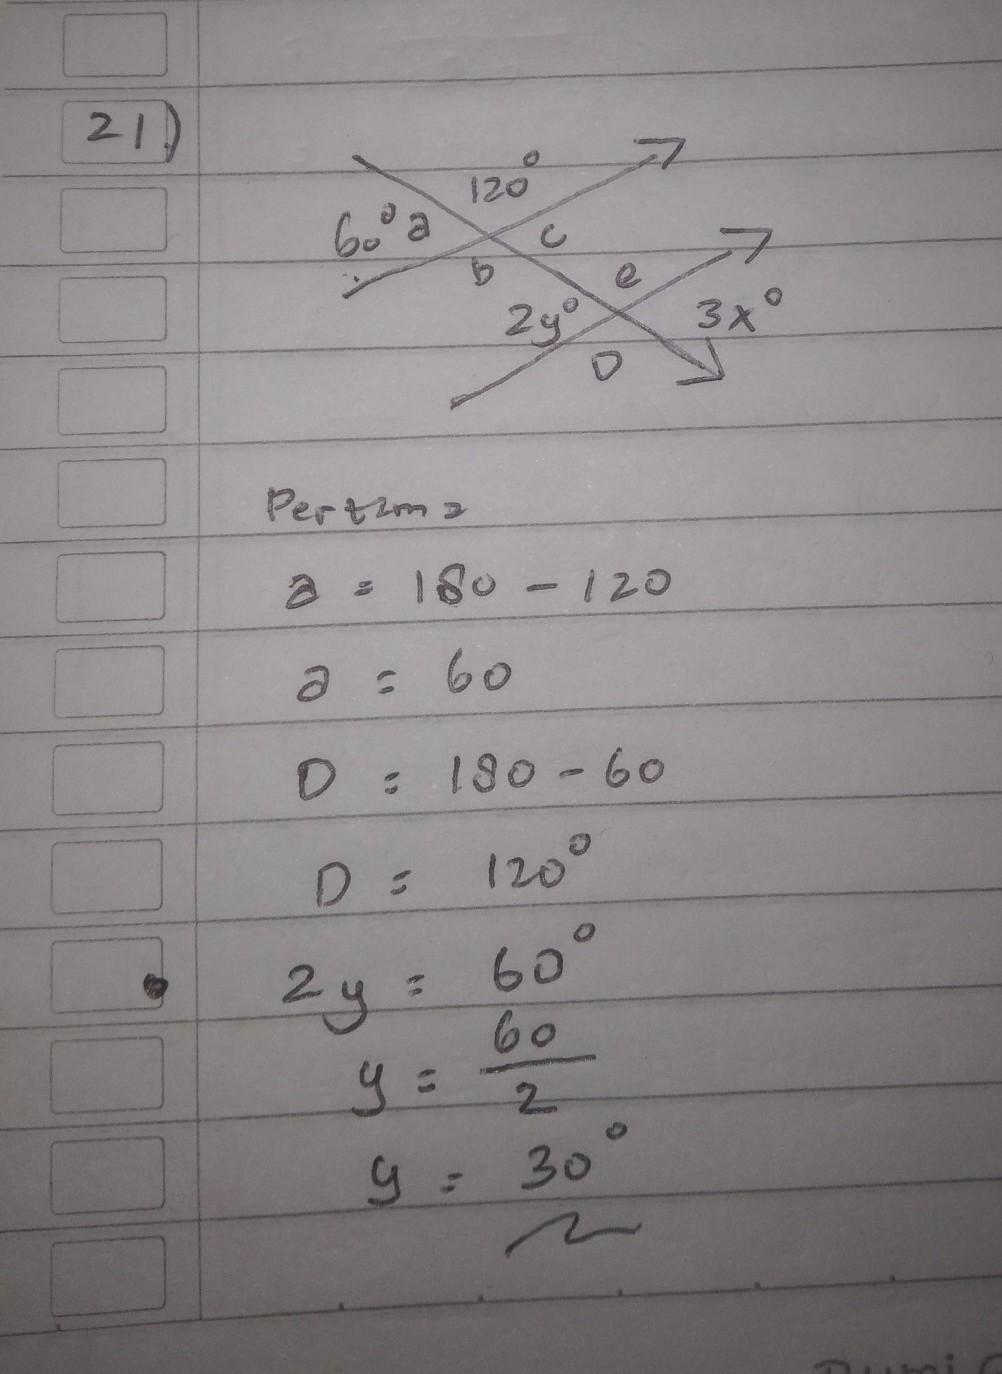 21)
120°
60° a
c
b
e
2y°
3x°
D
Pertama
a = 180 - 120
a = 60
D = 180 - 60
D = 120°
2y = 60°
y = 60/2
y = 30°